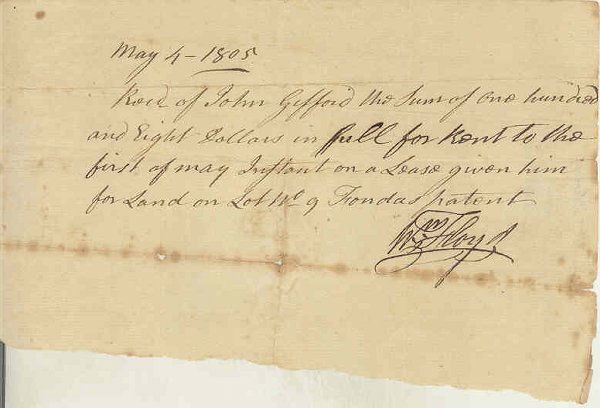 May 4 - 1805
Recd of John Gifford the Sum of One hundred
and Eight Dollars in full for Rent to the
first of may Instant on a Lease given him
for Land on Lot No 9 Fondas patent
Wm Floyd